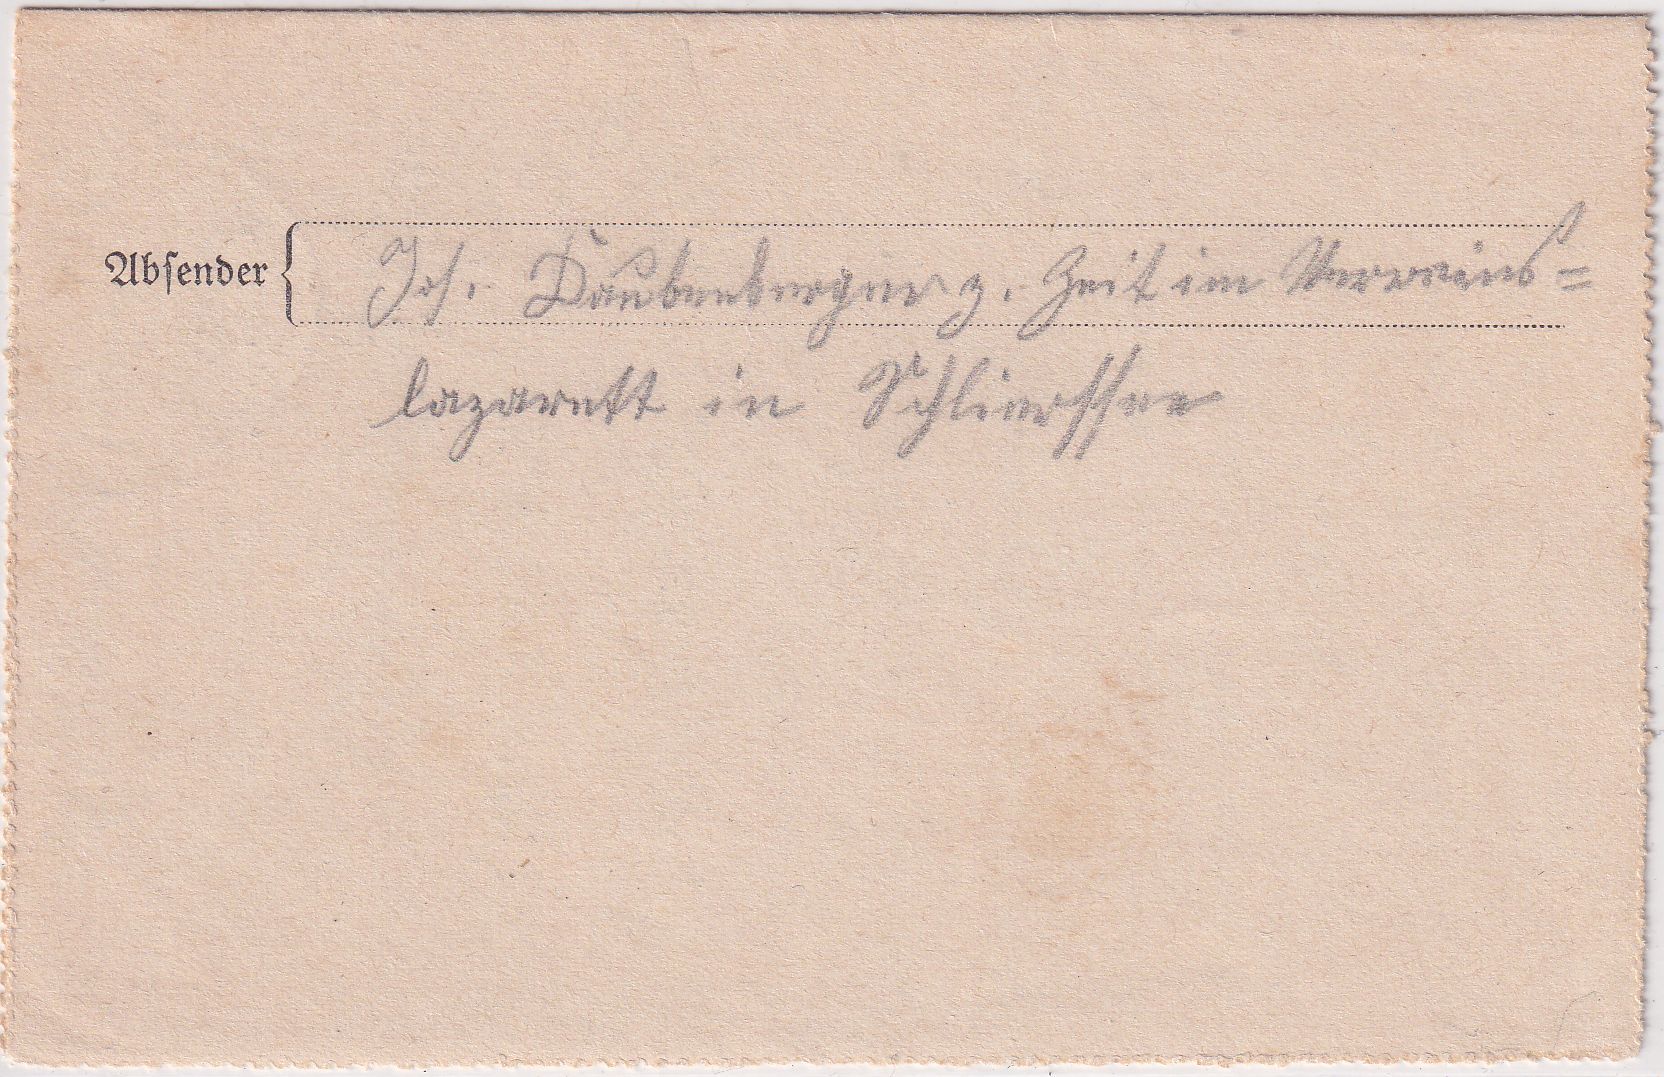 Absender Joh. Daubenberger z. Zeit im Vereins=
lazarett in Schliersee